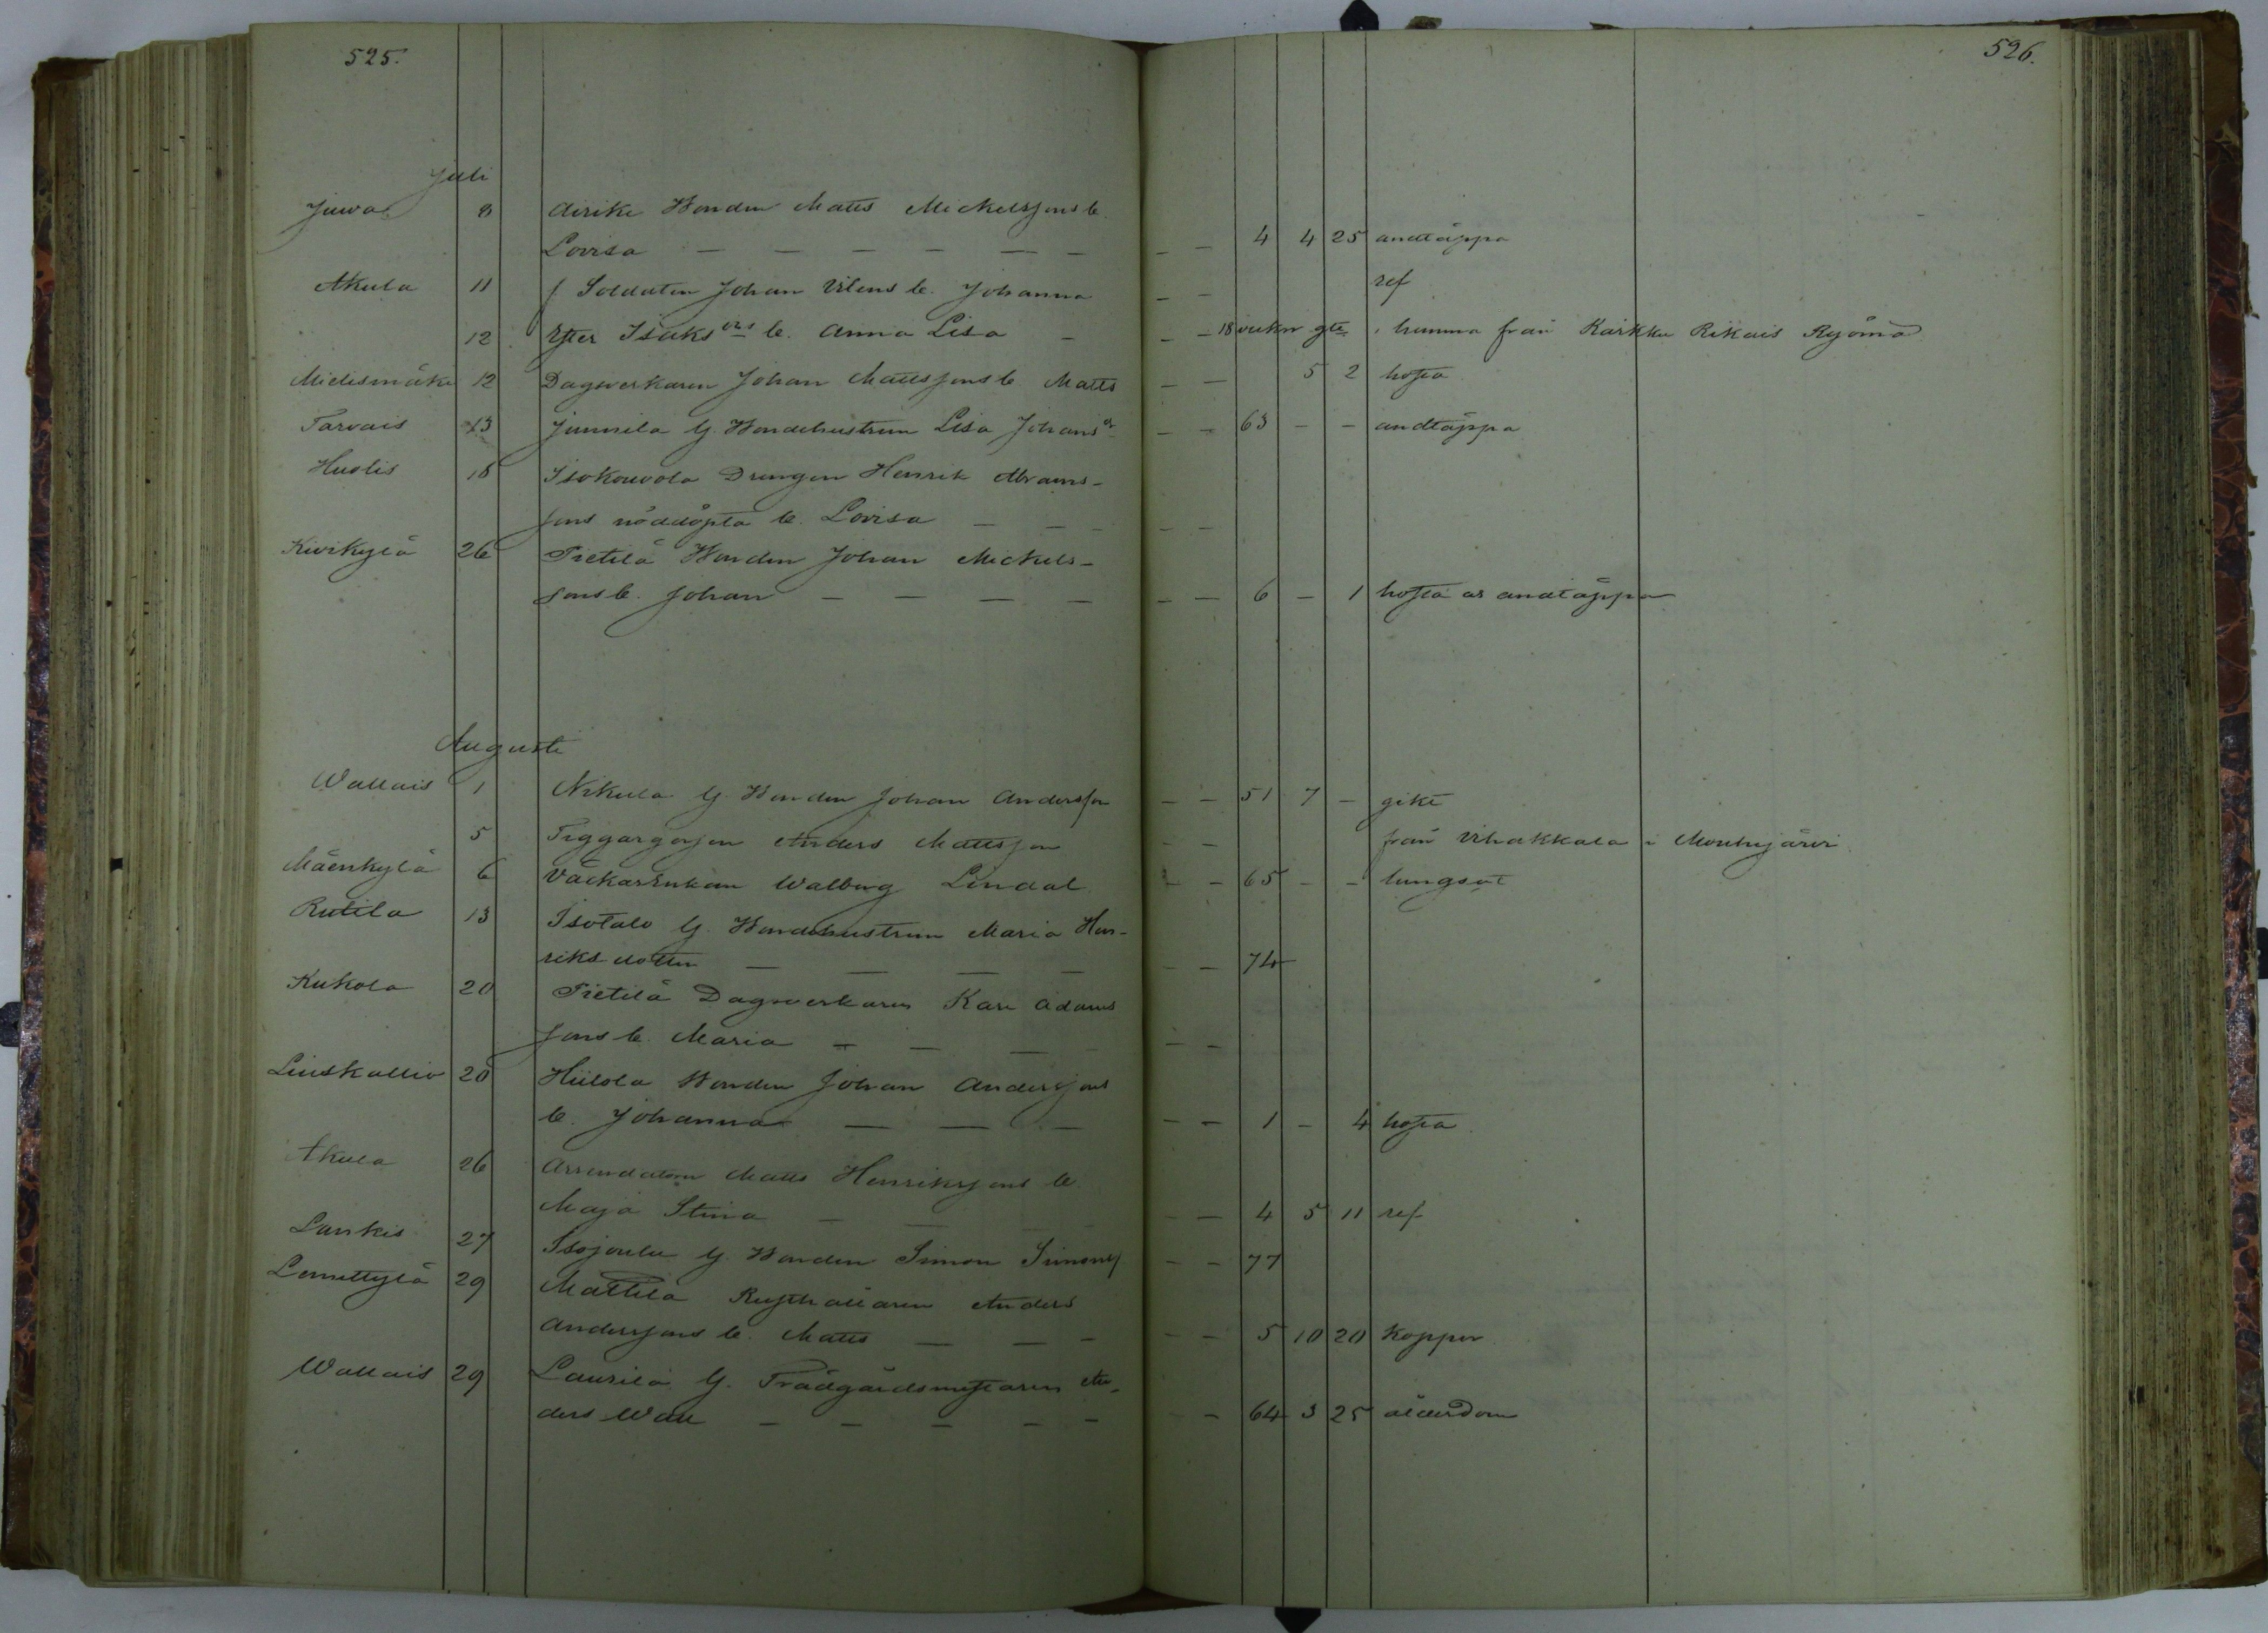 525.
526.
Juli
Juwa 8 Airike Bonden Matts Mickelssons b.
Lovisa — — — — — — — — 4 4 25 andtäppa
Akula 11 f. Soldaten Johan Vilens b. Johanna — — ref
12 Efter Isaksons b. Anna Lisa — — — 18 veckor gle hemma från Karkku Rikais Ryömä
Mielismäki 12 Dagsverkaren Johan Mattssons b Matts — — 5 2 hosta
Tarvais 13 Junnila G. Bondehustrun Lisa Johans dr — — 63 — — andtäppa
Huolis 18 Isokouvola Drengen Henrik Abrams-
sons nöddöpta b. Lovisa — — — — —
Kivikylä 26 Pietilä Bonden Johan Mickels-
sons b. Johan — — — — — — 6 — 1 hosta as andtäppa
Augusti
Wallais 1 Nikula G. Bonden Johan Andersson — — 51 7 — gikt
5 Tiggargossen Anders Mattsson — — från Vihakkala i Mouhijärvi
Mäenkylä 6 Väckarenkan Walborg Lindal — — 65 — — lungsot
Rutila 13 Isotalo G. Bondehustrun Maria Hen-
riksdotter — — — — — — 74
Kukola 20 Pietilä Dagsverkaren Karl Adams
sons b. Maria — — — — — —
Linskallio 20 Hiilola Bonden Johan Anderssons
b. Johanna — — — — — 1 — 4 hosta
Akula 26 Arrendatorn Matts Henrikssons b.
Maja Stina — — — — — — 4 5 11 ref
Lankis 27 Isojoulu G. Bonden Simon Simonss — — 77
Lemettylä 29 Mattila Rusthållaren Anders
Anderssons b. Matts — — — — — 5 10 20 Koppor
Wallais 29 Laurila G. Trädgårdsmästaren An-
ders Wall — — — — — — 64 3 25 ålderdom